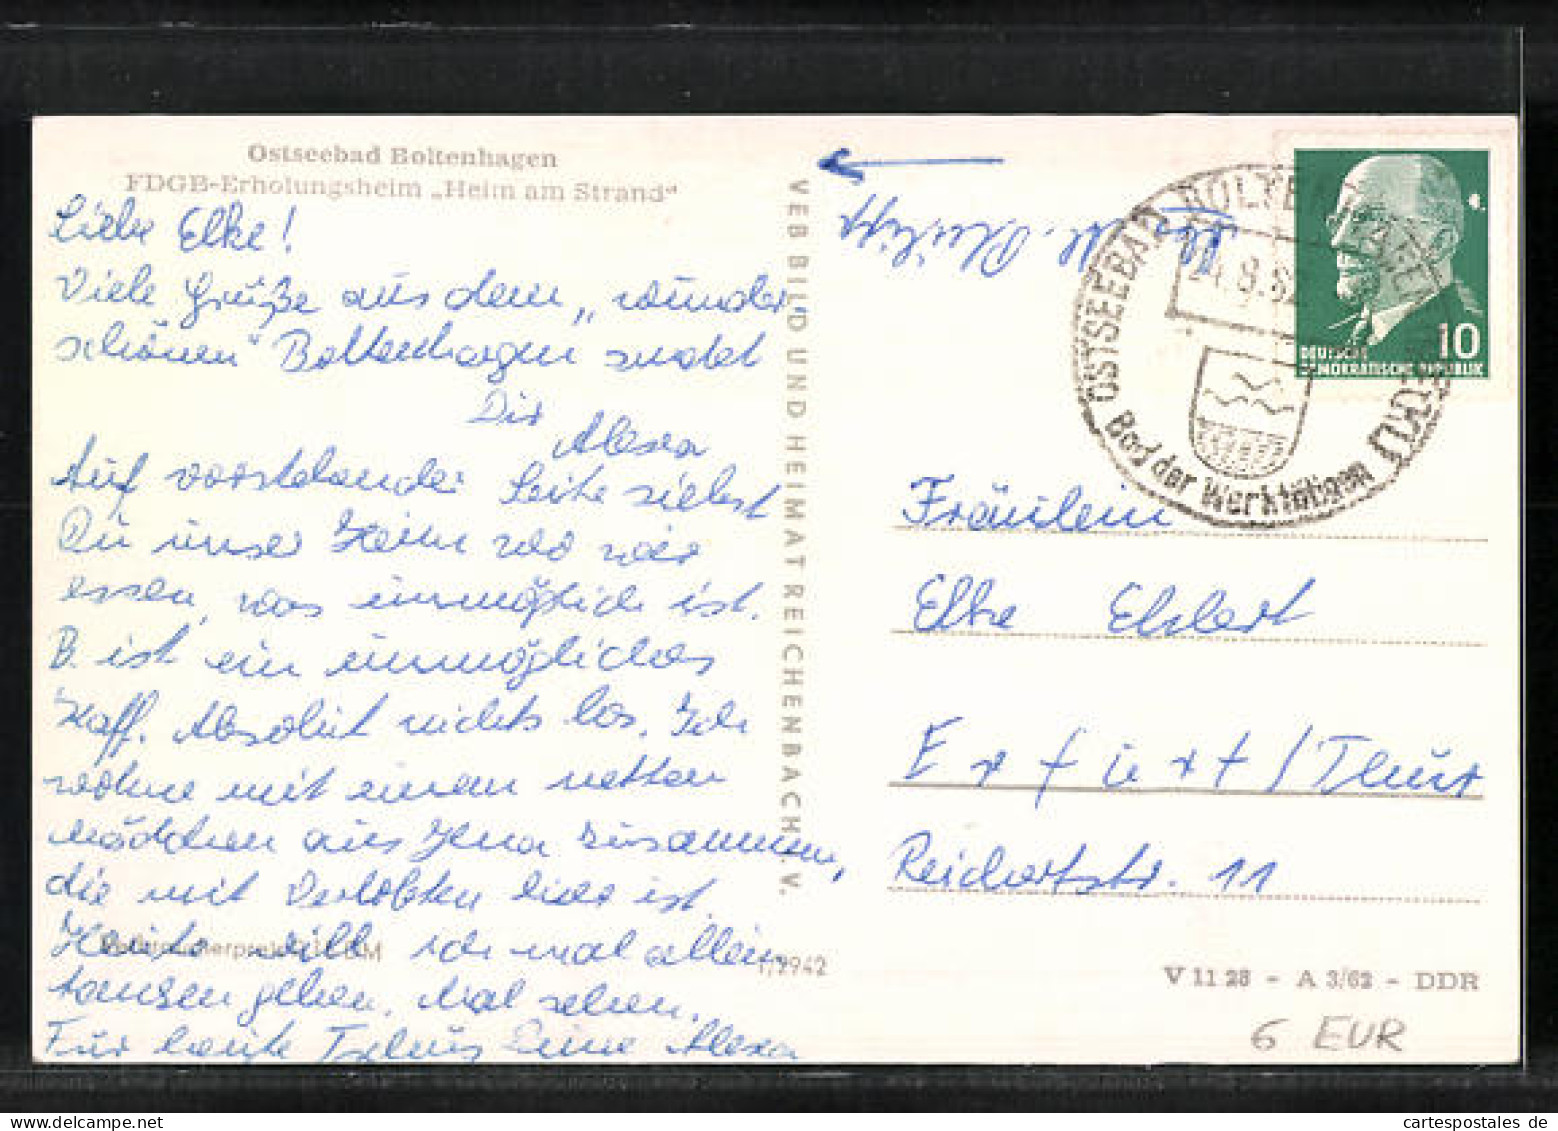 Ostseebad Boltenhagen
FDGB-Erholungsheim „Heim am Strand“
Liebe Elke!
Viele Grüße aus dem „wunder
schönen“ Boltenhagen sendet
Dir
Alexa
Auf vorstehender Seite siehst
Du unser Heim wo wir
essen, was unmöglich ist.
B. ist ein unmögliches
Kaff. Absolut nichts los. Ich
wohne mit einem netten
Mädchen aus Jena zusammen,
die mit Verlobten hier ist.
Heute will ich mal allein
tanzen gehen. Mal sehen.
Für heute Tschüs Deine Alexa
VEB BILD UND HEIMAT REICHENBACH I. V.
1/2942
OSTSEEBAD BOLTENHAGEN (MECKL)
4.8.62
Bad der Werktätigen
10
DEUTSCHE
DEMOKRATISCHE REPUBLIK
Fräulein
Elke Ehlert
Erfurt/Thür
Reichartstr. 11
V 11 28 - A 3/62 - DDR
6 EUR
cartespostales de